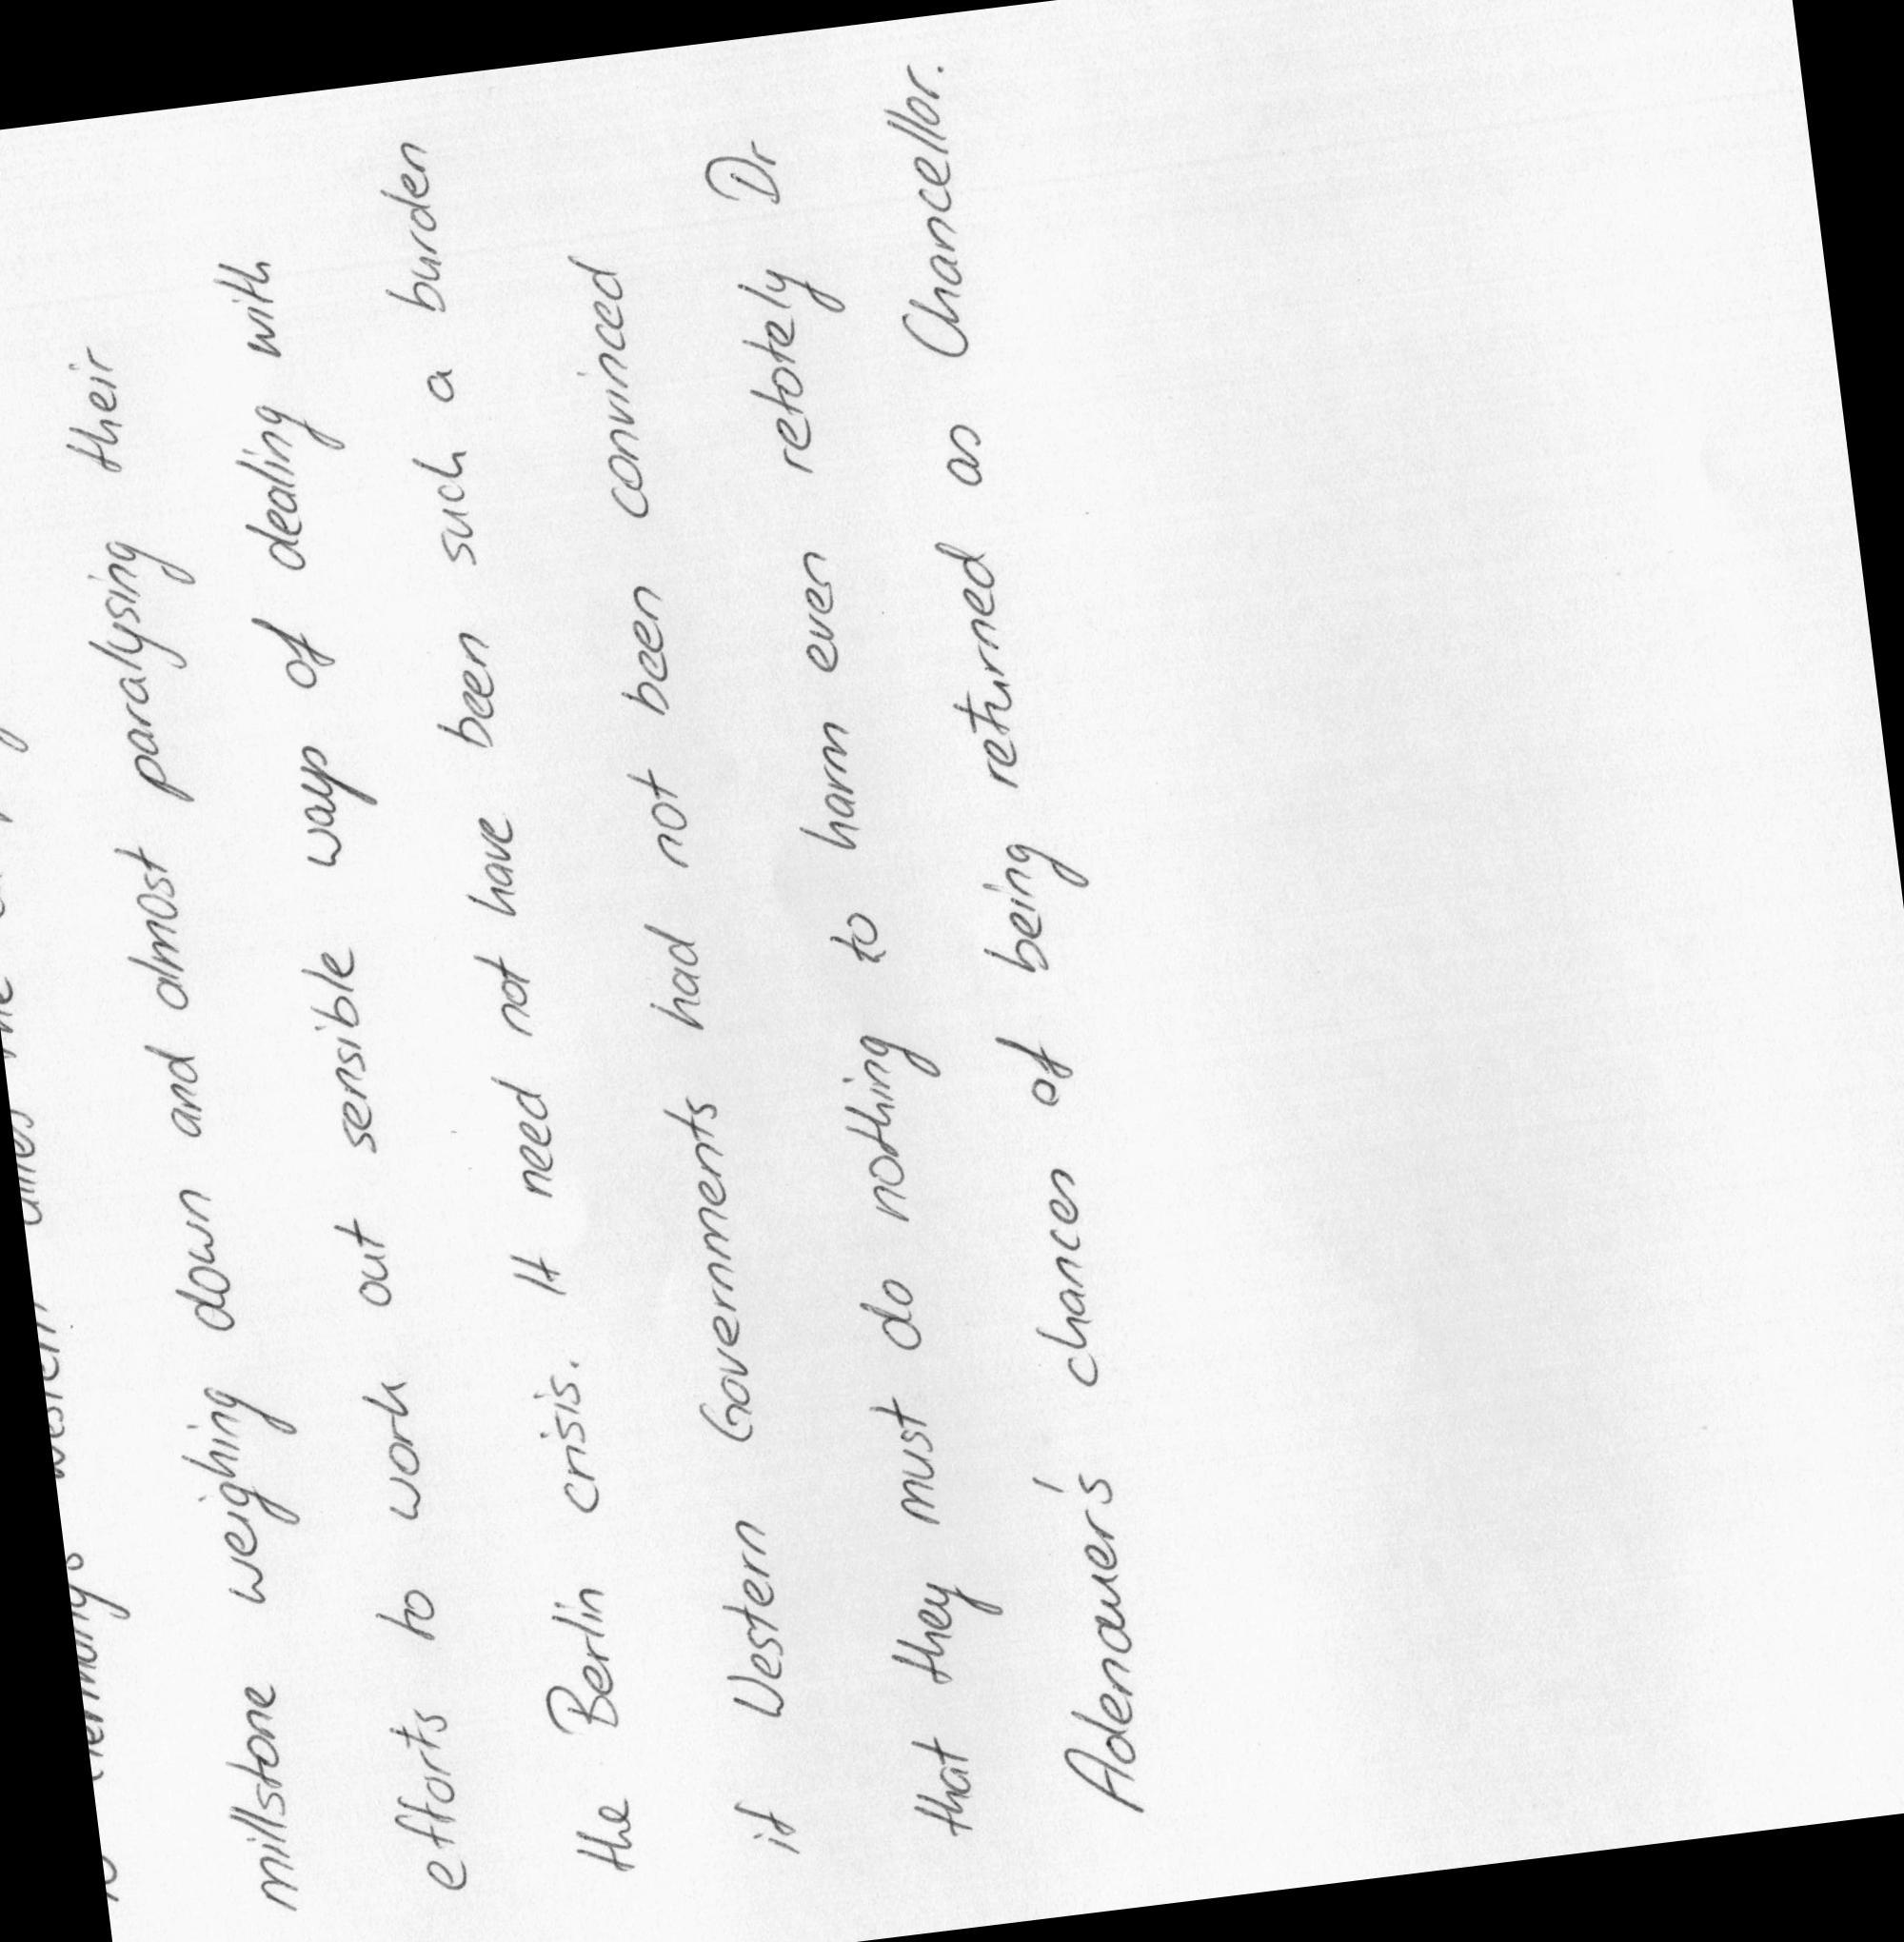 to Germany's Western allies the
millstone weighing down and almost paralysing their
efforts to work out sensible ways of dealing with
the Berlin crisis. It need not have been such a burden
if Western Governments had not been convinced
that they must do nothing to harm even retotely Dr
Adenauer's chances of being returned as Chancellor.